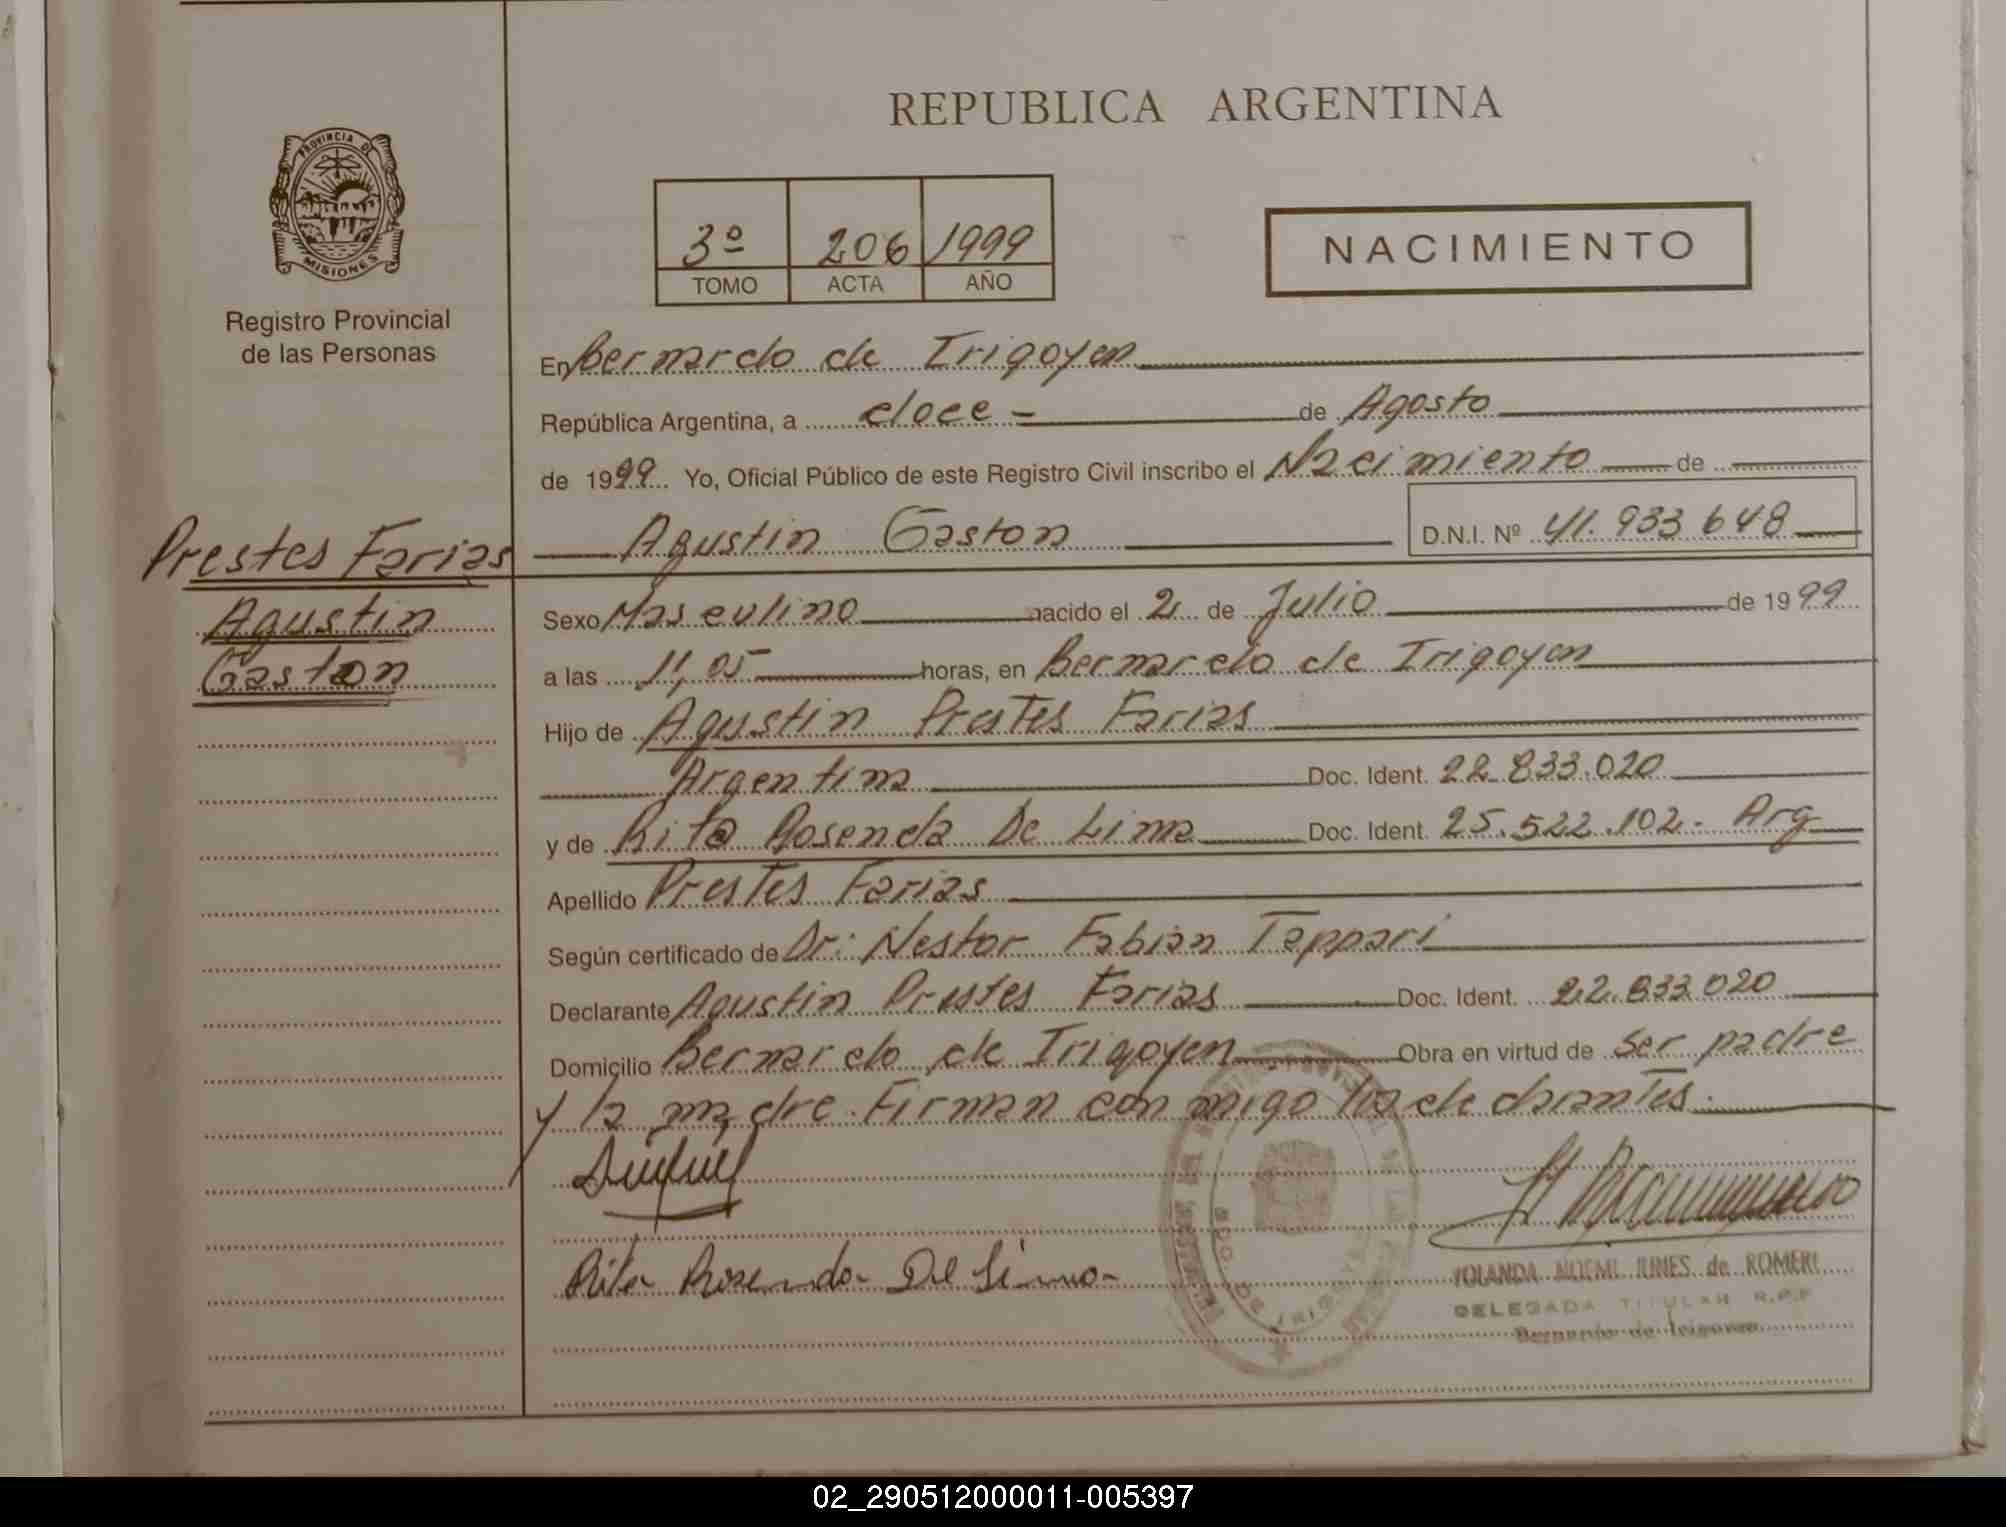 REPUBLICA ARGENTINA
PROVINCIA DE
MISIONES
Registro Provincial
de las Personas
3º 206 1999
TOMO ACTA AÑO
NACIMIENTO
En Bernardo de Irigoyen
República Argentina, a doce - de Agosto
de 1999 Yo, Oficial Público de este Registro Civil inscribo el Nacimiento de
Agustin Gaston D.N.I. Nº 41.933 648
Prestes Farias
Agustin
Gaston
Sexo Masculino nacido el 2 de Julio de 1999
a las 11,05 horas, en Bernardo de Irigoyen
Hijo de Agustin Prestes Farias
Argentina Doc. Ident. 22.833.020
y de Rita Rosenda De Lima Doc. Ident. 25.522.102. Arg
Apellido Prestes Farias
Según certificado de Dr: Nestor Fabian Tappari
Declarante Agustin Prestes Farias Doc. Ident. 22.833.020
Domicilio Bernardo de Irigoyen Obra en virtud de ser padre
y la madre. Firman con migo los declarantes.
Rita Rosenda De Lima
YOLANDA NOEMI de ROMERI
DELEGADA TITULAR R.P.P
Bernardo de Irigoyen
02_290512000011-005397